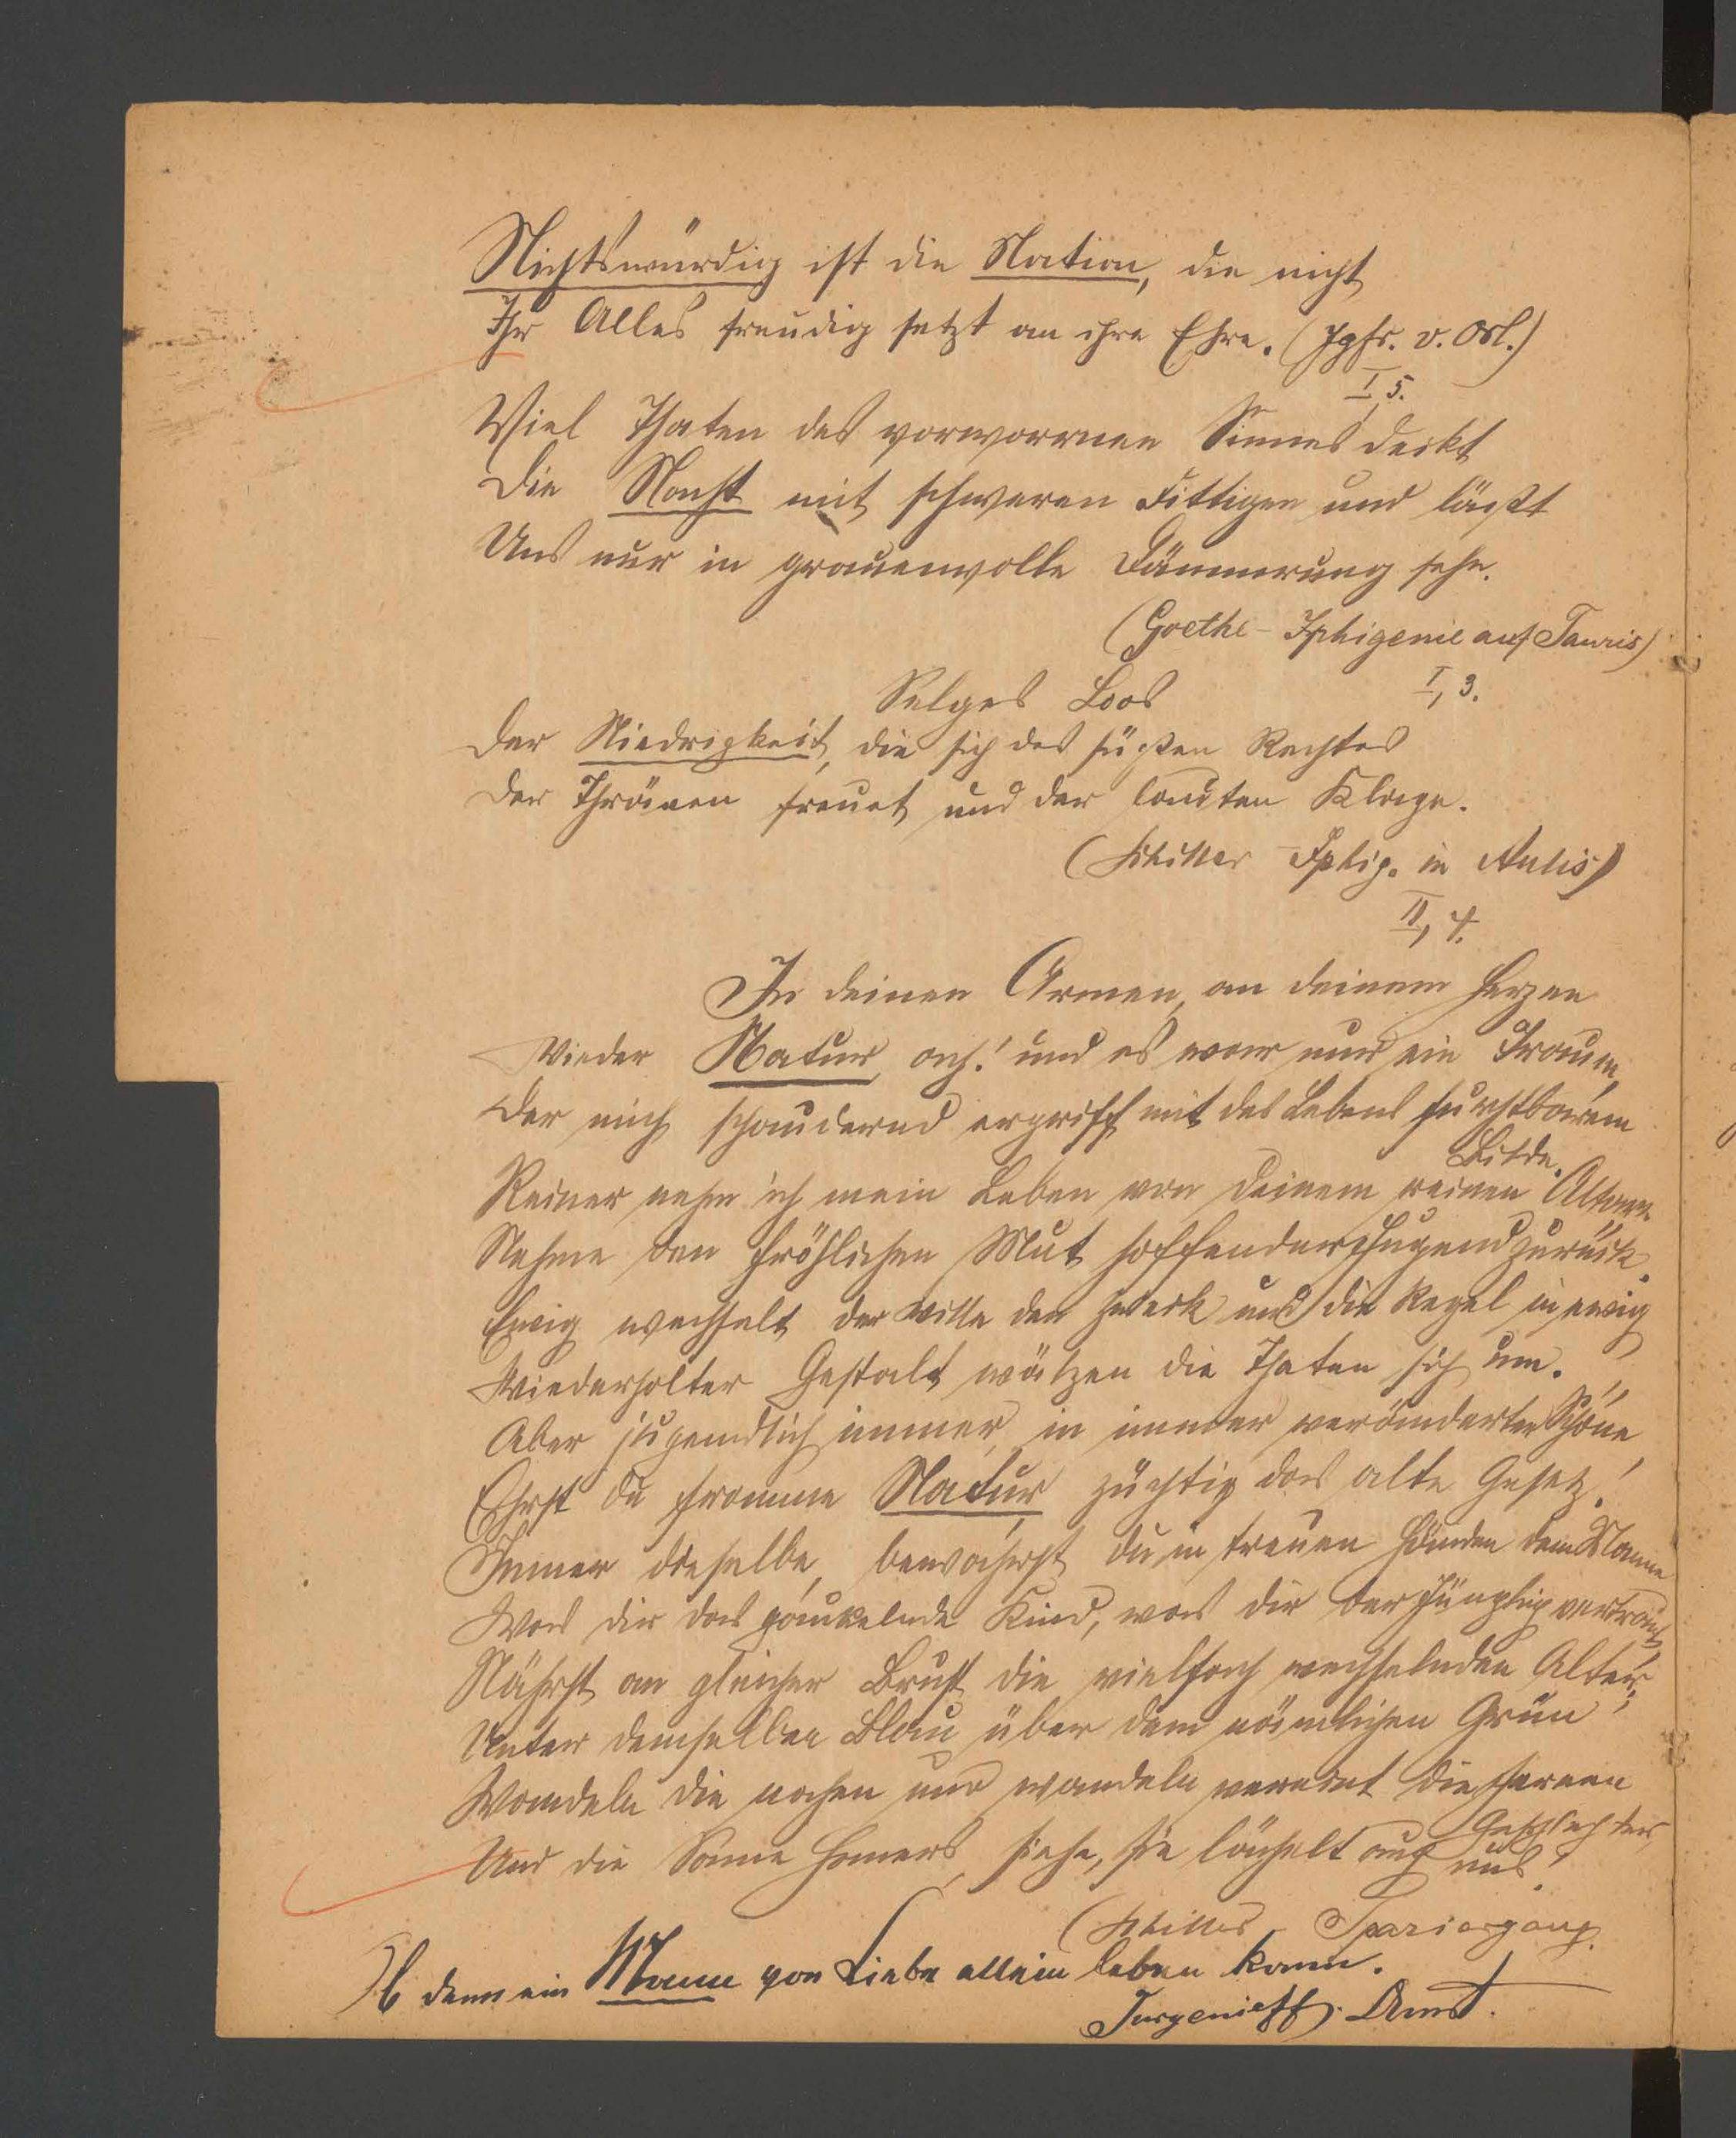 Nichtswürdig ist die Nation, die nicht
Ihr Alles freudig setzt an ihre Ehre. (Jgfr. v. Orl.)
I, 5.
Viel Thaten des verworrnen Sinnes deckt
Die Nacht mit schweren Fittigen und läßt
Uns nur in grauenvolle Dämmerung sehn.
(Goethe - Iphigenie auf Tauris)
I, 3.
Selges Loos
Der Niedrigkeit, die sich des süßen Rechtes
Der Thränen freuet und der lauten Klage.
(Schiller Iphig. in Aulis)
II, 4.
In deinen Armen, an deinem Herzen
Wieder Natur, ach! und es war nur ein Traum,
Der mich schaudernd ergriff mit des Lebens furchtbarem
Bilde.
Reiner nehm ich mein Leben von deinem reinen Altare
Nehme den fröhlichen Mut hoffender Jugend zurück.
Ewig wechselt der Wille den Zweck und die Regel, in ewig
Wiederholter Gestalt wälzen die Thaten sich um.
Aber jugendlich immer, in immer veränderter Schöne
Ehrst du fromme Natur züchtig das alte Gesetz!
Immer dieselbe, bewahrst du in treuen Händen dem Manne
Was dir das gaukelnde Kind, was dir der Jüngling vertraut,
Nährst an gleicher Brust die vielfach wechselnden Alter;
Unter demselben Blau über dem nämlichen Grün
Wandeln die nahen und wandeln vereint die fernen
Geschlechter,
Und die Sonne Homers, siehe, sie lächelt auch uns!
(Schiller - Spaziergang.
Ob denn ein Mann von Liebe allein leben kann.
Turgenieff.